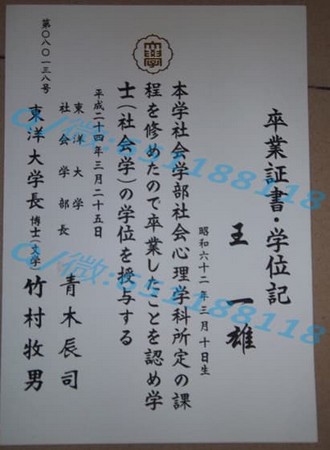 卒業証書・学位記
王一雄
昭和六十二年三月十日生
本学社会学部社会心理学科所定の課
程を修めたので卒業したことを認め学
士（社会学）の学位を授与する
平成二十四年三月二十五日
東洋大学
社会学部長 青木辰司
東洋大学長 博士（文学） 竹村牧男
第〇八〇一三八号